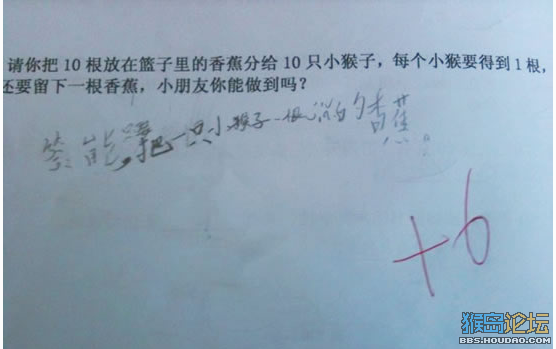 请你把 10 根放在篮子里的香蕉分给 10 只小猴子，每个小猴要得到 1 根，
还要留下一根香蕉，小朋友你能做到吗？
答：能，把一只小猴子一根 的香蕉。
+6
猴岛论坛
BBS.HOUDAO.COM